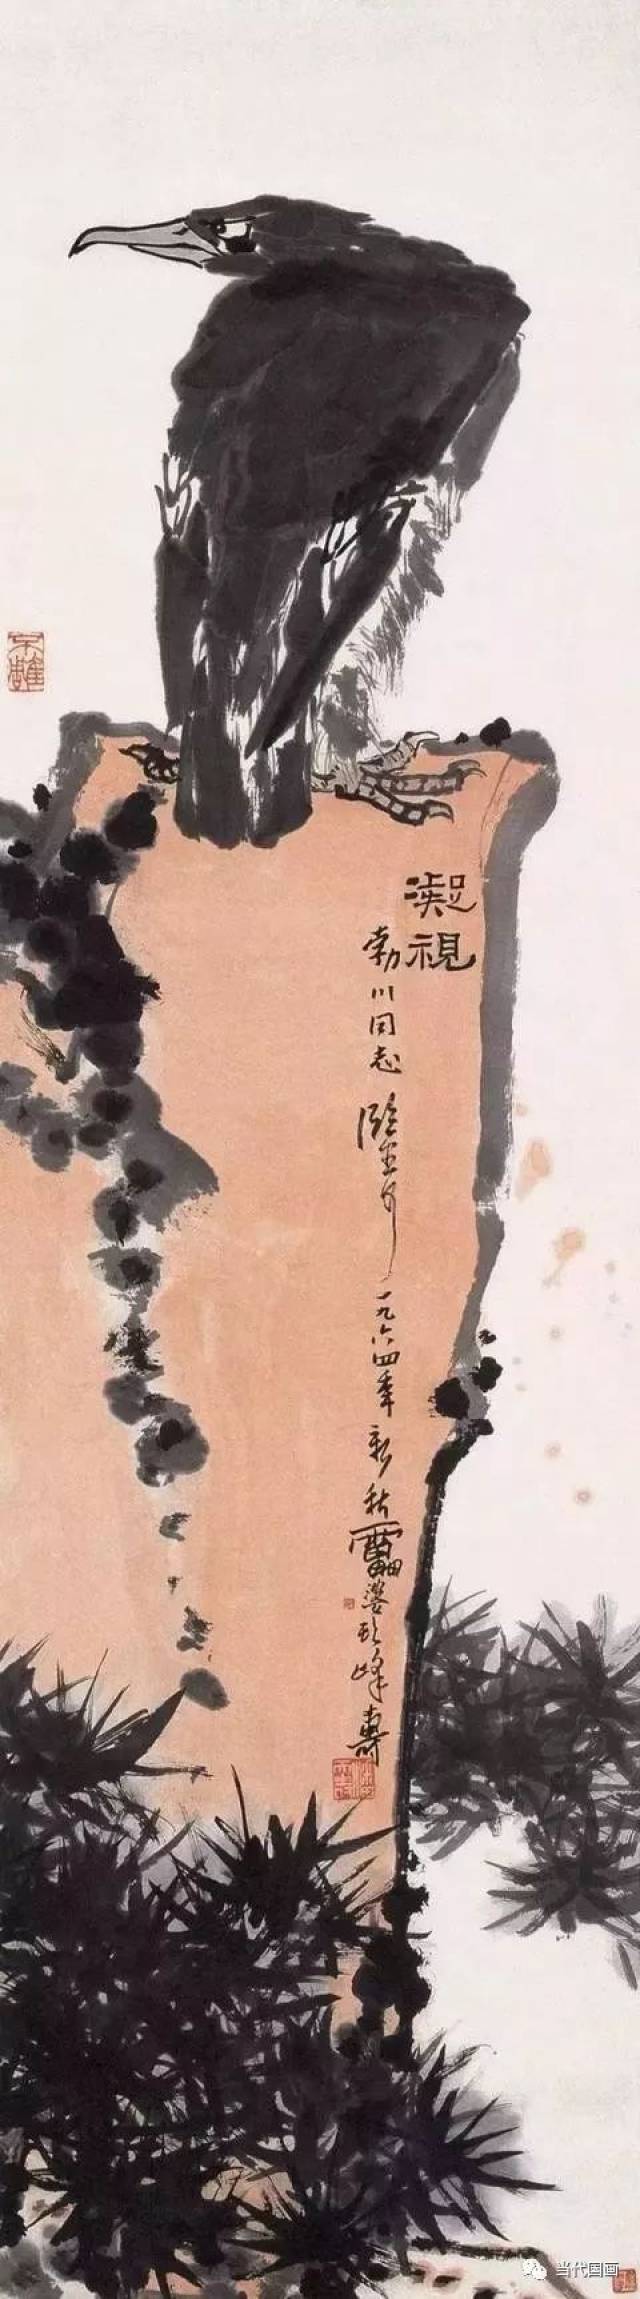 凝視
勃川同志鑒可一九六四年新秋雷婆頭峰壽
不雕
当代国画